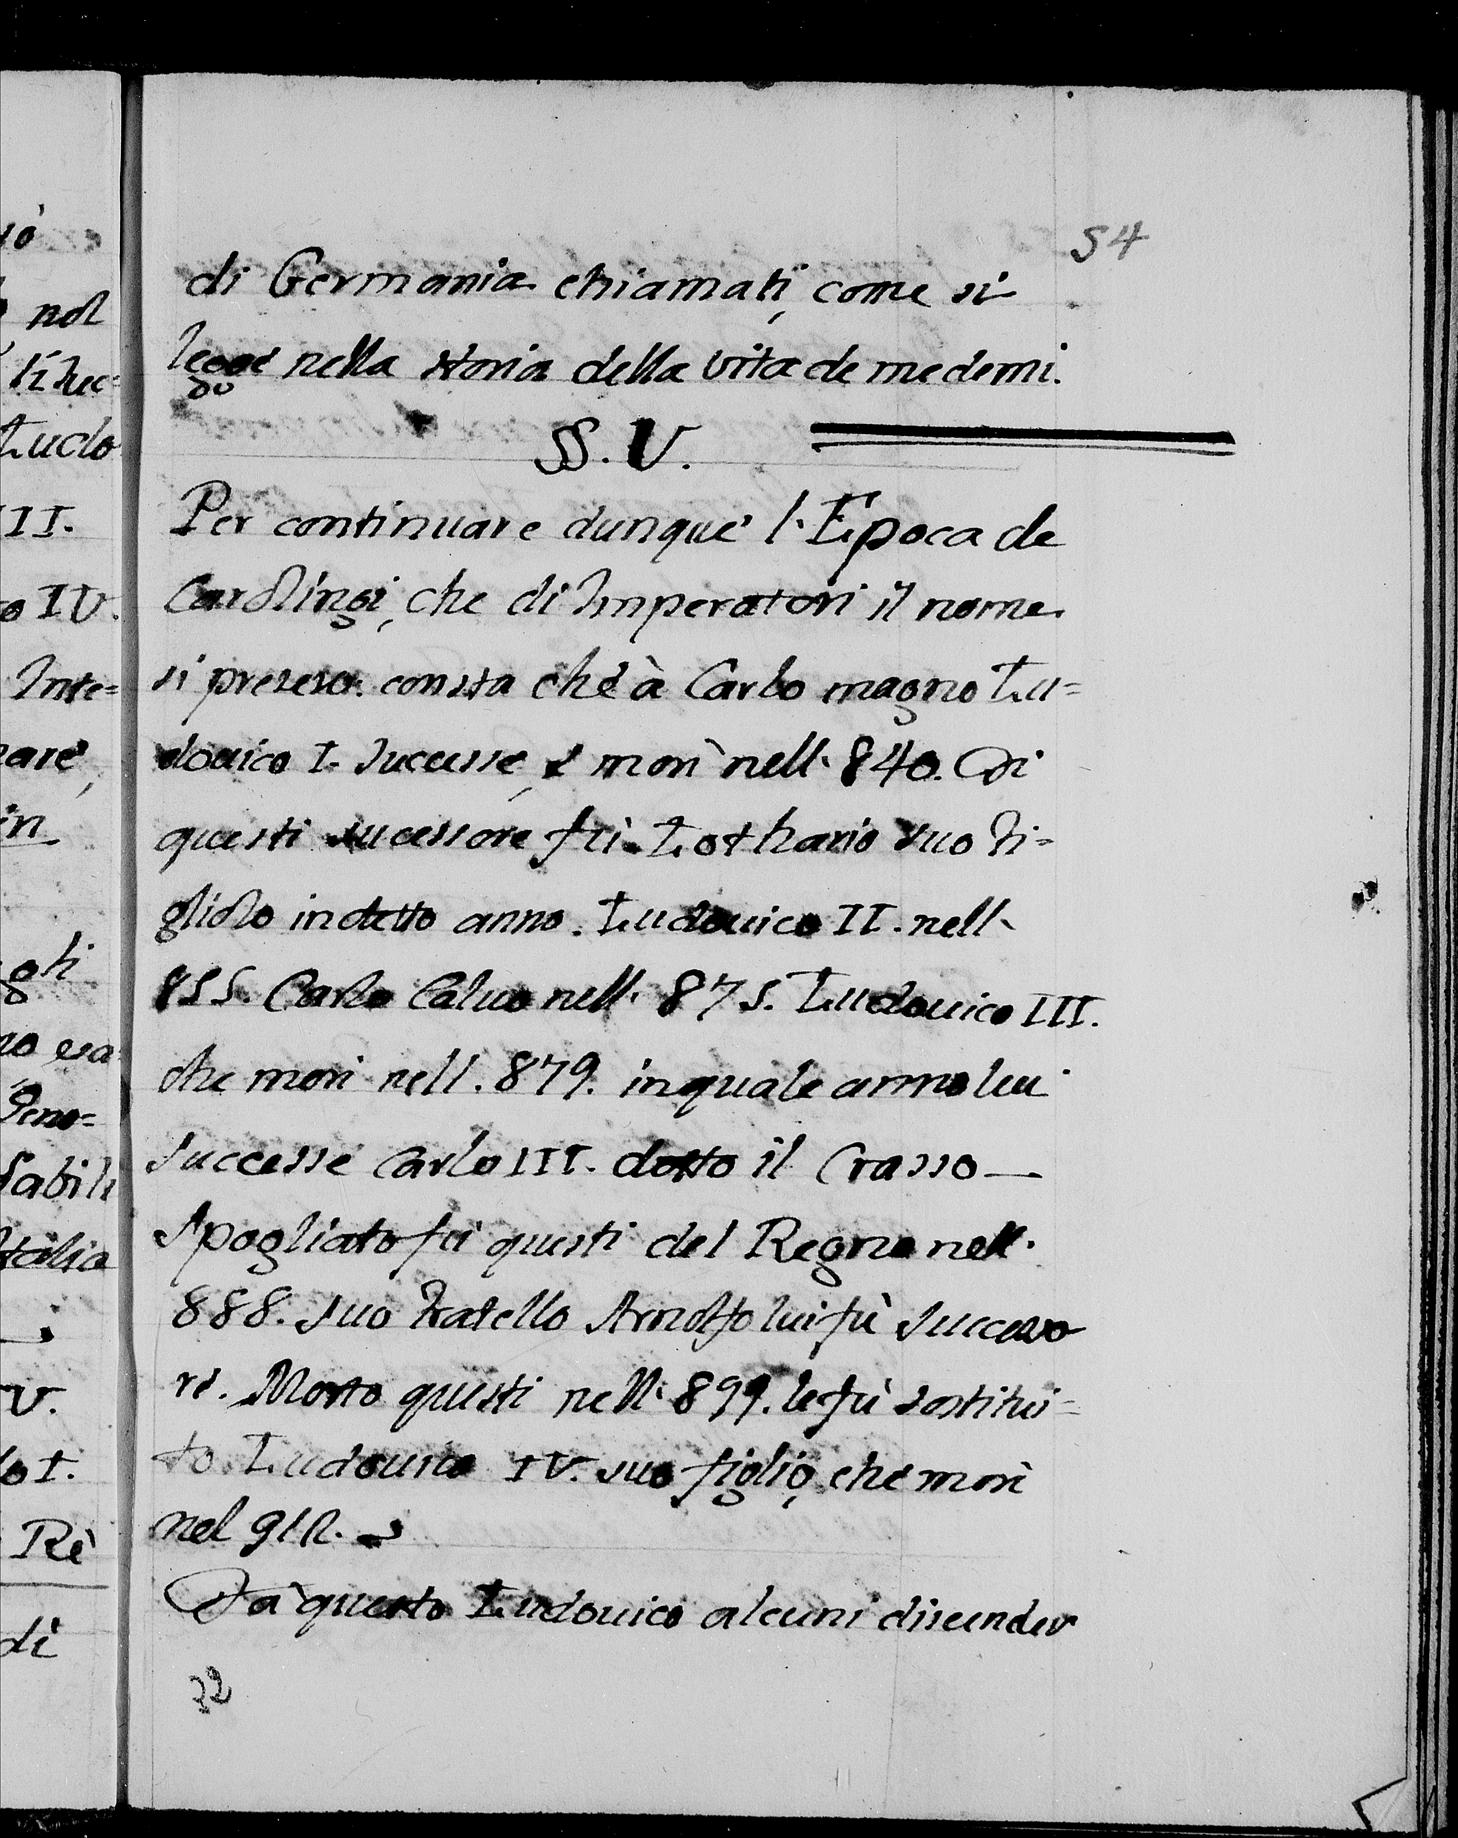 54
di Germania chiamati, come si
legge nella storia della vita de medemi.
§§. V.
Per continuare dunque l'Epoca de
Carolingi, che di Imperatori il nome
si presero. consta che à Carlo magno Lu=
douico I. sucesse, e morì nell' 840. Di
questi sucessore fù Lothario suo fi=
gliolo in detto anno. Ludouico II. nell'
855. Carlo Caluo nell' 875. Ludouico III.
che morì nell. 879. in quale anno lui
successe Carlo III. detto il Crasso —
Spogliato fù questi del Regno nell'
888. suo fratello Arnolfo lui fù successo
re. Morto questi nell' 899. le fù sostitui=
to Ludouico IV. suo figlio, che morì
nel 912.
Da questo Ludouico alcuni discender
32
iò
nol
Ludo
III.
o IV.
Inte=
are,
in
gli
V.
o I.
Rè
di